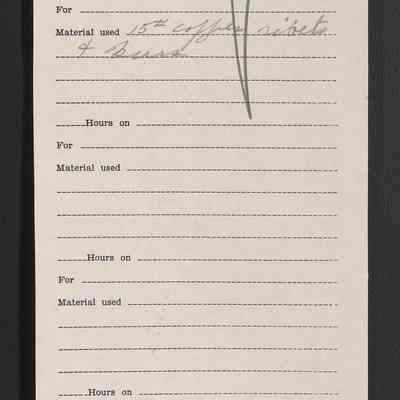 For
Material used 15# copper rivets
& burrs
Hours on
For
Material used
Hours on
For
Material used
Hours on